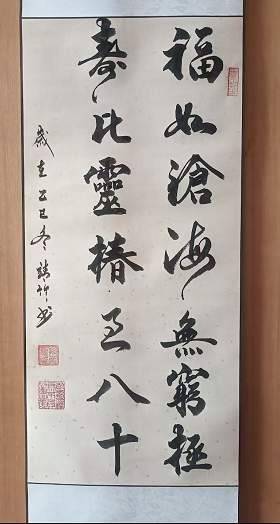 福如滄海無窮極
壽比靈椿八十
歲在乙巳冬书